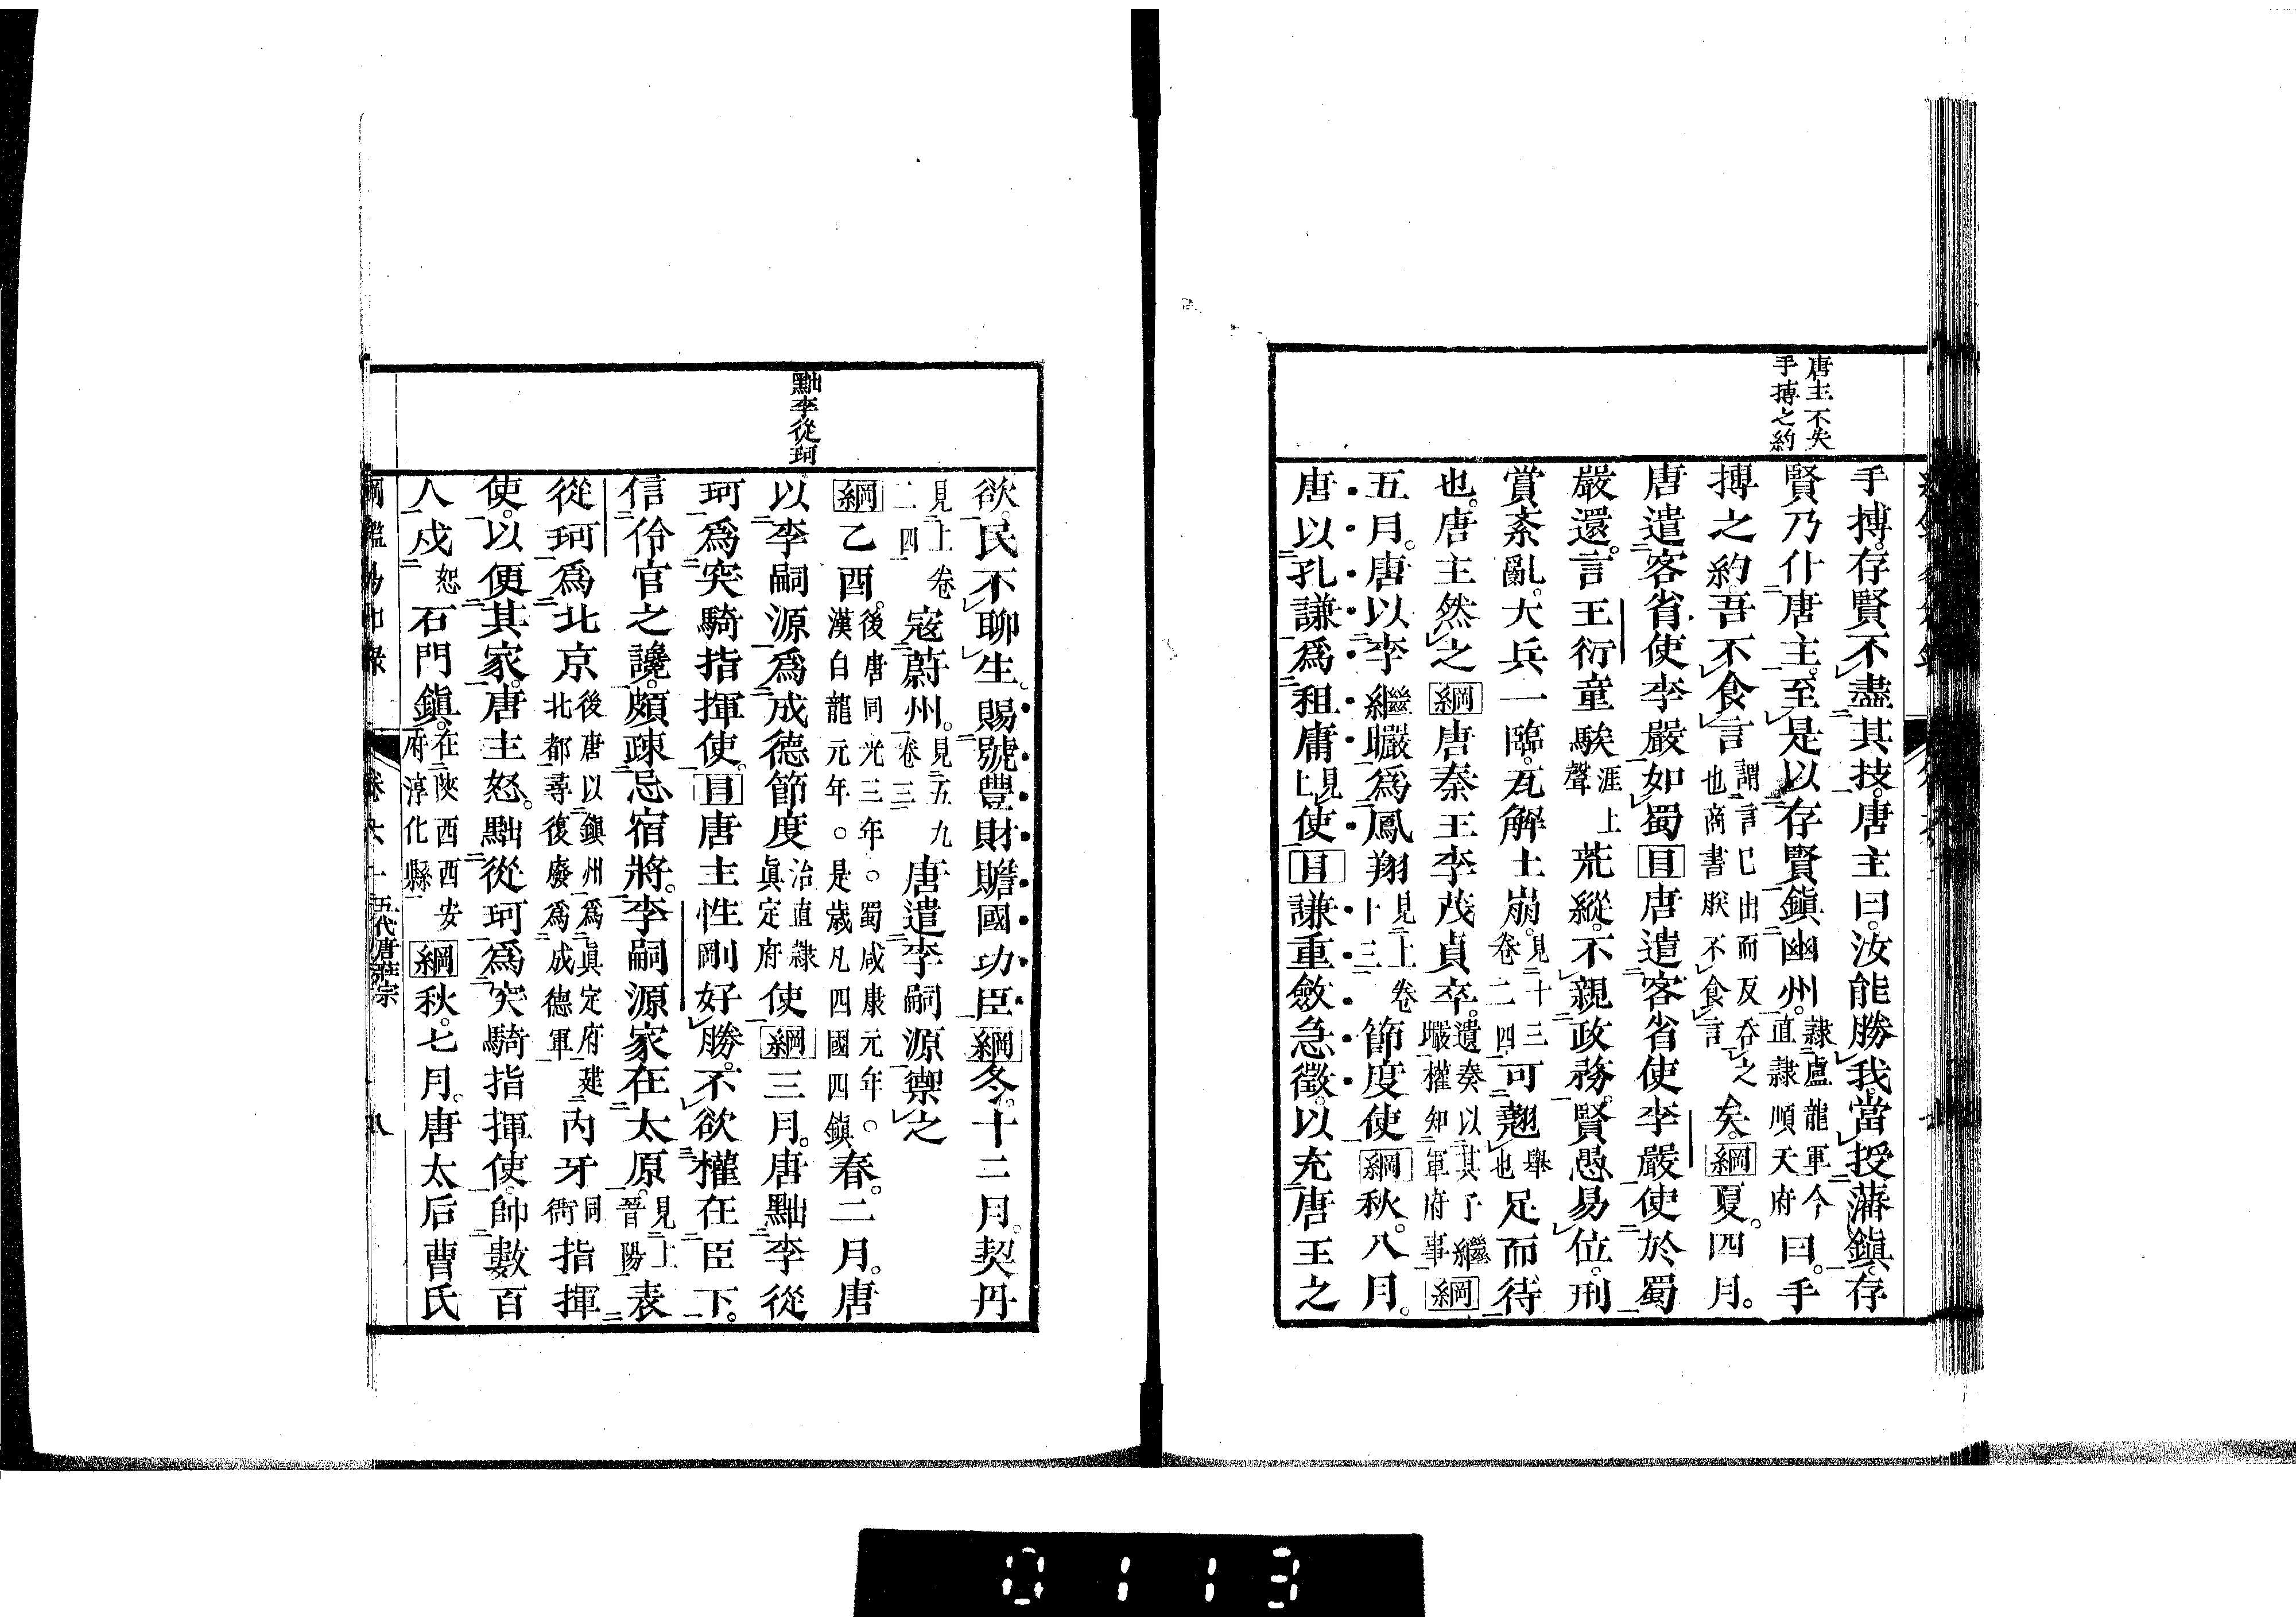 唐主不失
手搏之約
手搏。存賢不盡其技。唐主曰。汝能勝我。當授藩鎭。存
賢乃仆唐主。至是以存賢鎭幽州。隸盧龍軍今直隸順天府曰。手
搏之約。吾不食言謂言已出而反吞之也商書朕不食言矣。綱夏。四月。
唐遣客省使李嚴如蜀目唐遣客省使李嚴使於蜀
嚴還。言王衍童騃涯上聲荒縱。不親政務。賢愚易位。刑
賞紊亂。大兵一臨。瓦解土崩。見十三卷二四可翹舉也足而待
也。唐主然之綱唐秦王李茂貞卒。遺奏以其子繼曮權知軍府事綱
五月。唐以李繼曮爲鳳翔見上卷十三節度使綱秋。八月。
唐以孔謙爲租庸見上使目謙重斂急徵。以充唐主之
欲。民不聊生。賜號豐財贍國功臣綱冬。十二月。契丹
見上卷二四寇蔚州。見五九卷三唐遣李嗣源禦之
綱乙酉。後唐同光三年。蜀咸康元年。漢白龍元年。是歲凡四國四鎭春。二月。唐
以李嗣源爲成德節度治直隸眞定府使綱三月。唐黜李從
珂爲突騎指揮使。目唐主性剛好勝。不欲權在臣下。
信伶官之讒。頗疎忌宿將。李嗣源家在太原。見上晉陽表
從珂爲北京後唐以鎭州爲眞定府建北都尋復廢爲成德軍內牙同衙指揮
使。以便其家。唐主怒。黜從珂爲突騎指揮使。帥數百
人戍恕石門鎭。在陝西西安府淳化縣綱秋。七月。唐太后曹氏
黜李從珂
卷六十 五代唐莊宗 八
0113